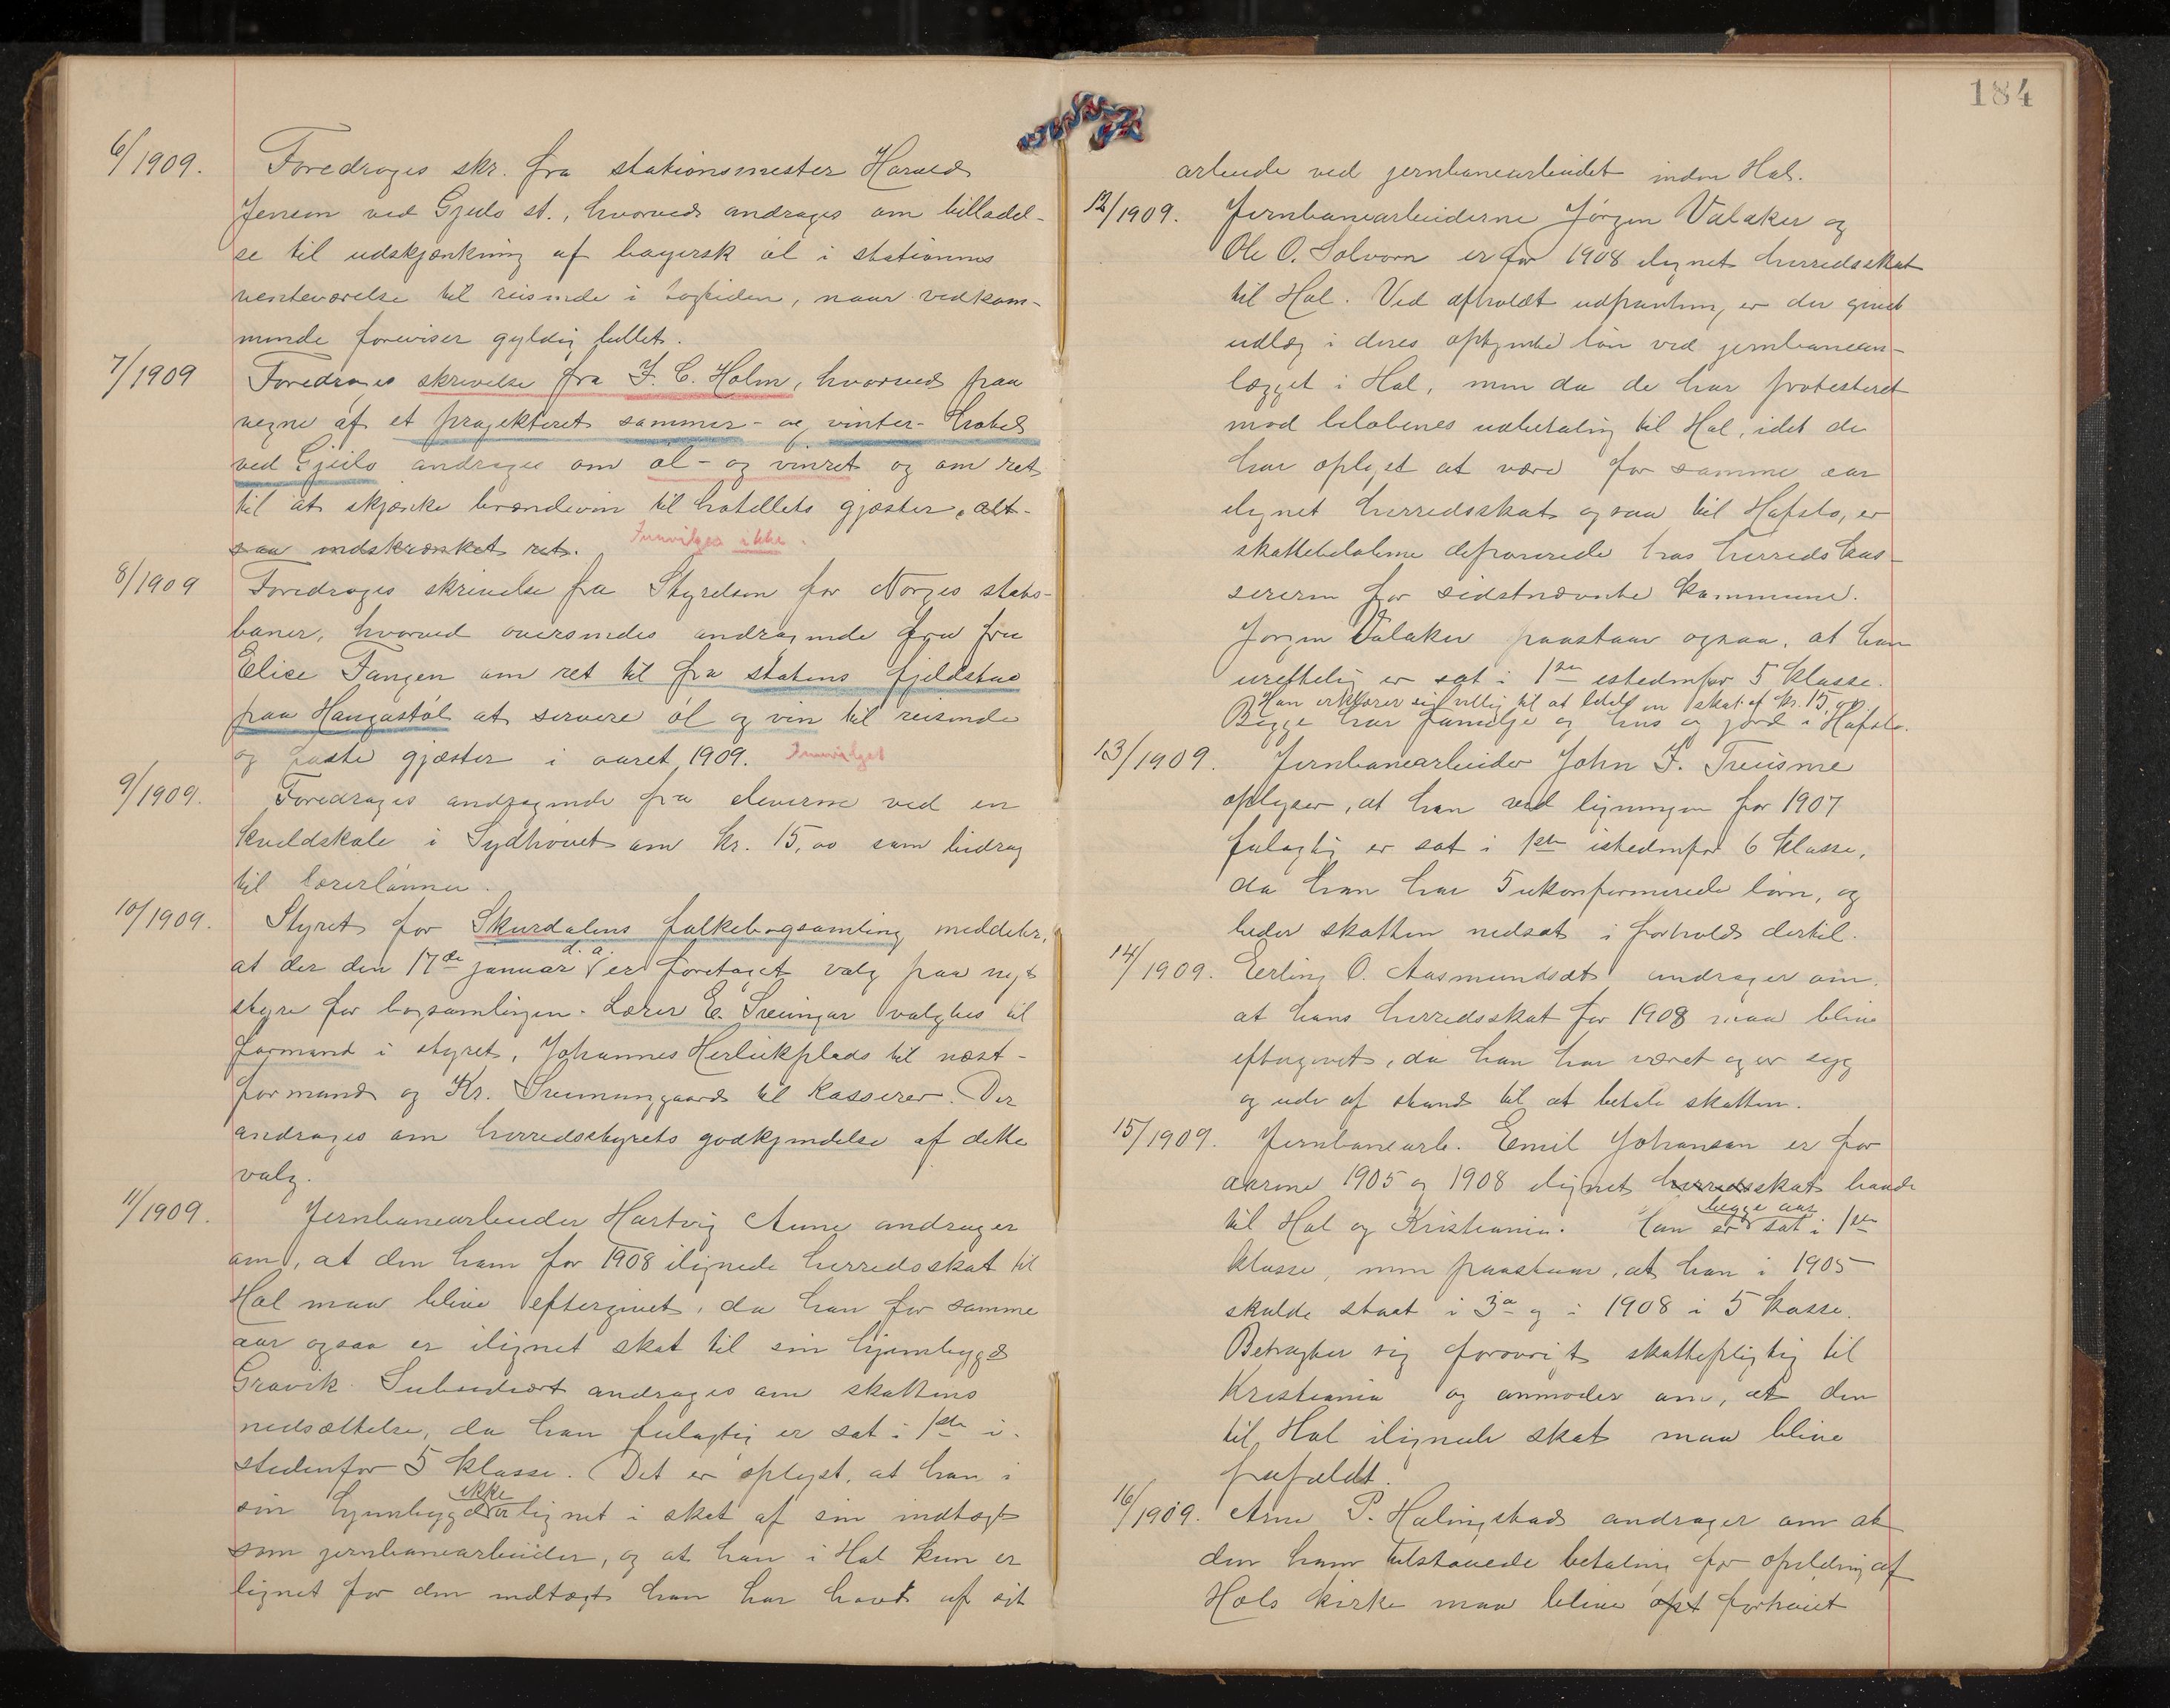 6/1909. Foredroges skr. fra stationsmester Harald
Jensen ved Gjeilo st., hvorved andrages om tilladel-
se til udskjænkning af bayersk øl i stationens
venteværelse til reisende i togtiden, naar vedkom-
mende foreviser gyldig billet.
7/1909 Foredroges skrivelse fra I. C. Holm, hvorved paa
vegne af et projekteret sommer- og vinter-hotel
ved Gjeilo andrages om øl- og vinret og om ret
til at skjænke brændevin til hotellets gjæster, alt-
saa indskrænket ret. Innvilges ikke.
8/1909 Foredroges skrivelse fra Styrelsen for Norges stats-
baner, hvorved oversendes andragende fra fru
Elise Fangen om ret til fra statens fjeldstue
paa Haugastøl at servere øl og vin til reisende
og faste gjæster i aaret 1909. Innvilget
9/1909. Foredroges andragende fra eleverne ved en
kveldskole i Sydhovet om kr. 15,00 som bidrag
til lærerlønnen.
10/1909. Styret for Skurdalens folkebogsamling meddeler,
d. a.
at der den 17de januar er foretaget valg paa nyt
styre for bogsamlingen. Lærer E. Sveingar valgtes til
formand i styret, Johannes Herleikplads til næst-
formand og Kr. Sveinunggaard til kasserer. Der
andrages om herredsstyrets godkjendelse af dette
valg.
11/1909. Jernbanearbeider Hartvig Aune andrager
om, at den ham for 1908 ilignede herredsskat til
Hol maa blive eftergivet, da han for samme
aar ogsaa er ilignet skat til sin hjembygd
Gravik. Subsidiært andrages om skattens
nedsættelse, da han feilagtig er sat i 1ste i-
stedenfor 5 klasse. Det er oplyst, at han i
ikke
sin hjembygd er lignet i skat af sin indtægt
som jernbanearbeider, og at han i Hol kun er
lignet for den indtægt han har havt af sit
184
arbeide ved jernbanearbeidet inden Hol.
12/1909. Jernbanearbeiderne Jørgen Valaker og
Ole O. Solvorn er for 1908 ilignet herredsskat
til Hol. Ved afholdt udpantning er der givet
udlæg i deres optjente løn ved jernbanean-
lægget i Hol, men da de har protesteret
mod beløbenes udbetaling til Hol, idet de
har oplyst at være for samme aar
ilignet herredsskat ogsaa til Hafslo, er
skattebeløbene deponerede hos herredskas-
sereren for sidstnævnte kommune.
Jørgen Valaker paastaar ogsaa, at han
urettelig er sat i 1ste istedenfor 5 klasse.
Han erklærer sig villig til at betale en skat af kr. 15,00.
Begge har familje og hus og jord i Hafslo.
13/1909. Jernbanearbeider John I. Treisme
oplyser, at han ved ligningen for 1907
feilagtig er sat i 1ste istedenfor 6 klasse,
da han har 5 ukonfirmerede børn, og
beder skatten nedsat i forhold dertil.
14/1909. Eerling O. Aasmundsæt andrager om,
at hans herredsskat for 1908 maa blive
eftergivet, da han har været og er syg
og ude af stand til at betale skatten.
15/1909. Jernbanearb. Emil Johansen er for
aarene 1905 og 1908 ilignet herredsskat baade
begge aar
til Hol og Kristiania. Han er sat i 1ste
klasse, men paastaar, at han i 1905
skulde staat i 3a og i 1908 i 5 klasse.
Betragter sig forøvrigt skattepligtig til
Kristiania og anmoder om, at den
til Hol ilignede skat maa blive
frafaldt.
16/1909. Arne P. Holingstad andrager om at
den ham tilstaaede betaling for opfyldning af
Hols kirke maa blive opt forhøiet